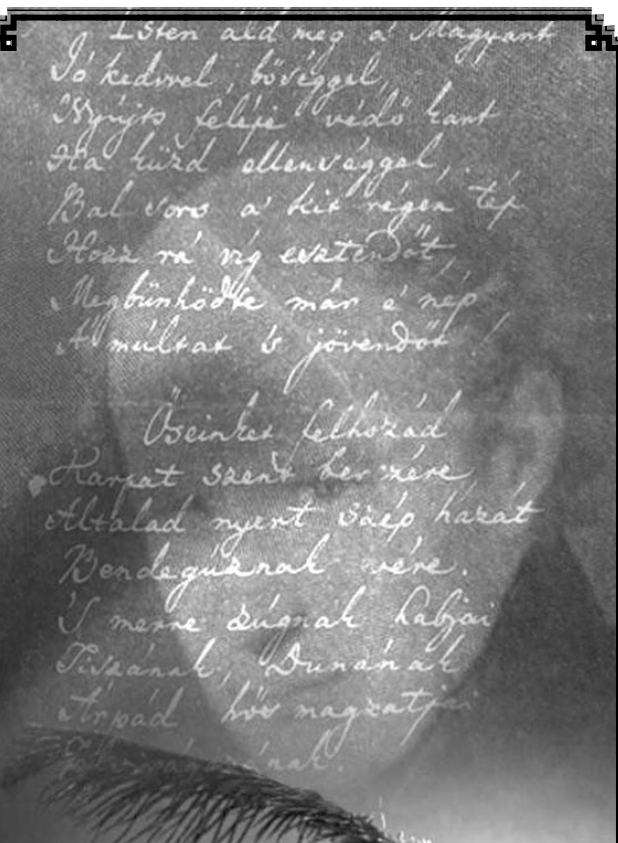 Isten áld meg a' Magyart
Jó kedvvel, bőséggel,
Nyújts feléje védő kart
Ha küzd ellenséggel,
Bal sors a' kit régen tép
Hozz rá víg esztendőt,
Megbűnhődte már e' nép
A' múltat 's jövendőt!
Őseinket felhozád
Kárpát szent bérczére
Általad nyert szép hazát
Bendegúznak vére.
'S merre zúgnak habjai
Tiszának, Dunának
Árpád hős magzatjai